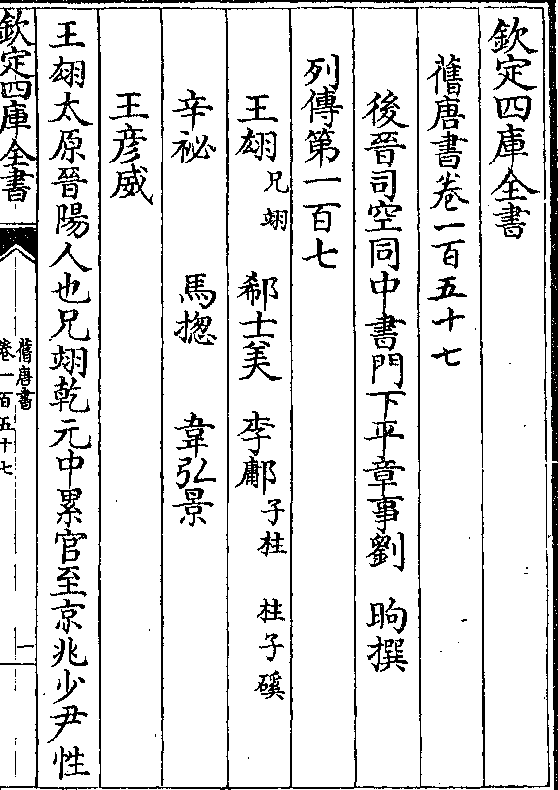 欽定四庫全書
舊唐書卷一百五十七
後晉司空同中書門下平章事劉 昫撰
列傳第一百七
王翃兄翊 郗士美 李鄘子柱 柱子磎
辛祕 馬摠 韋弘景
王彥威
王翃太原晉陽人也兄翊乾元中累官至京兆少尹性
欽定四庫全書
舊唐書
卷一百五十七
一